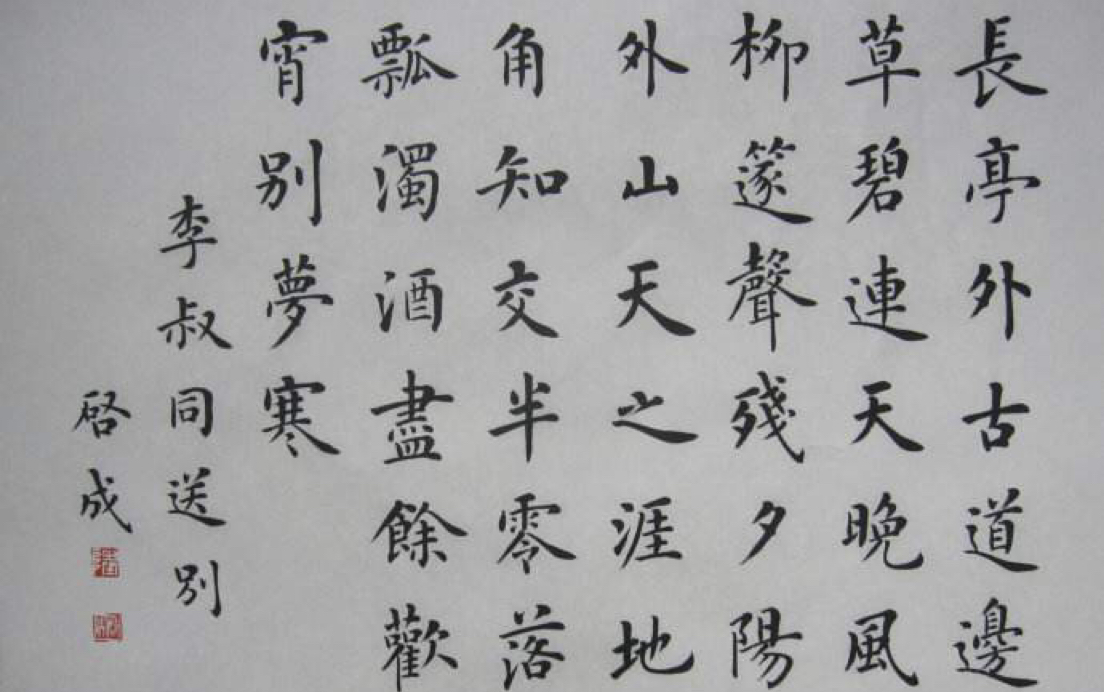 長亭外古道邊
草碧連天晚風
柳篴聲殘夕陽
外山天之涯地
角知交半零落
瓢濁酒盡餘歡
宵別夢寒
李叔同送別
啓成